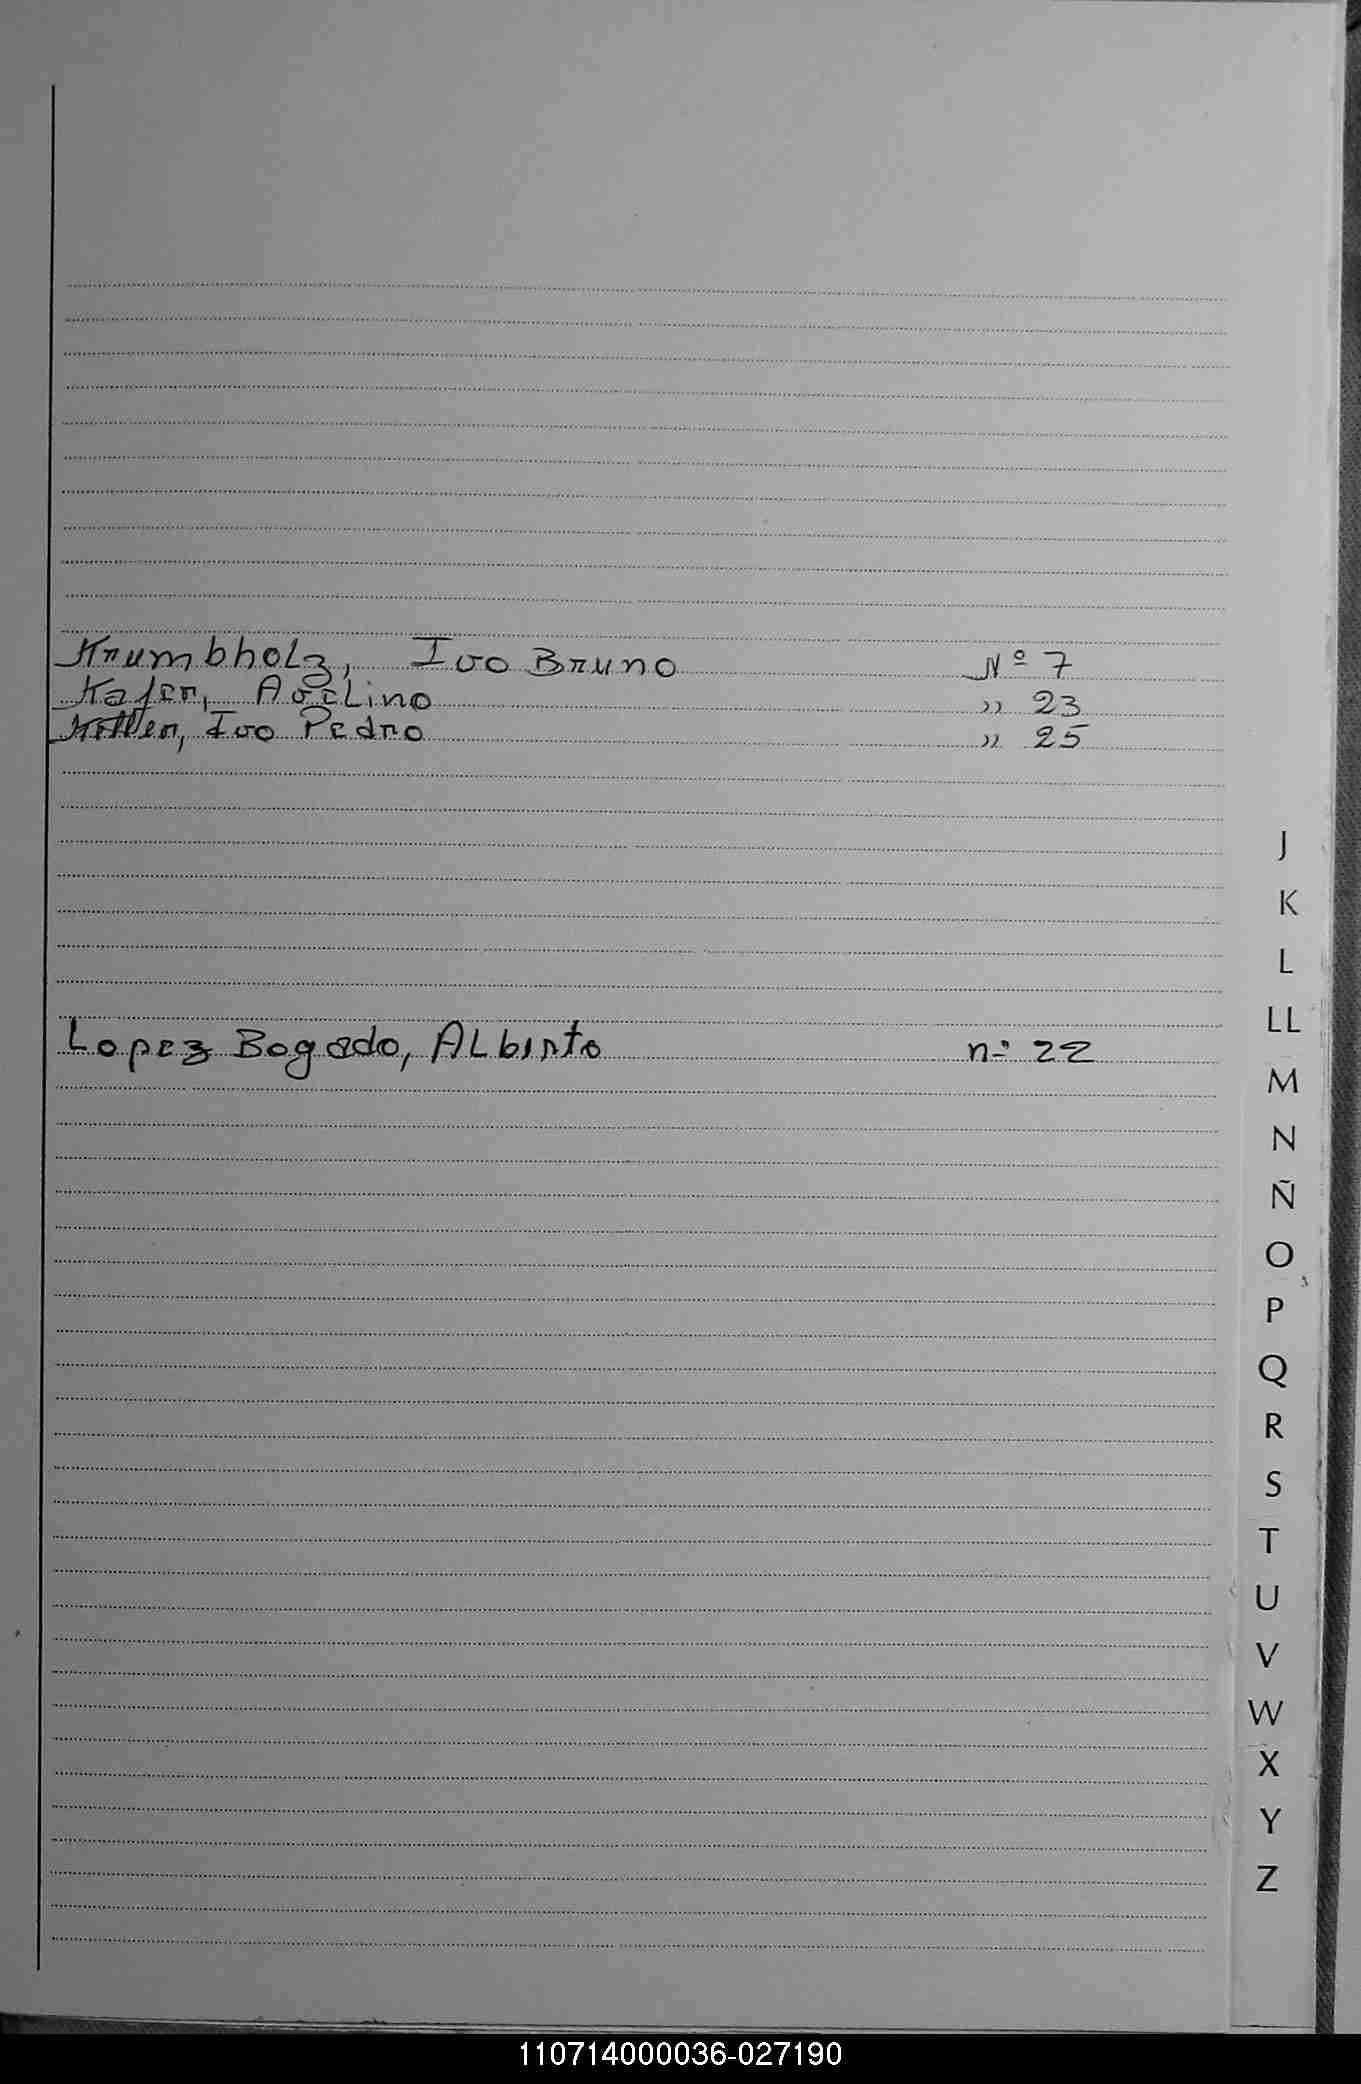 Krumbholz, Ivo Bruno Nº 7
Kafer, Avelino " 23
Ivo Pedro " 25
Lopez Bogado, ALbirto n-º 22
J
K
L
LL
M
N
Ñ
O
P
Q
R
S
T
U
V
W
X
Y
Z
110714000036-027190